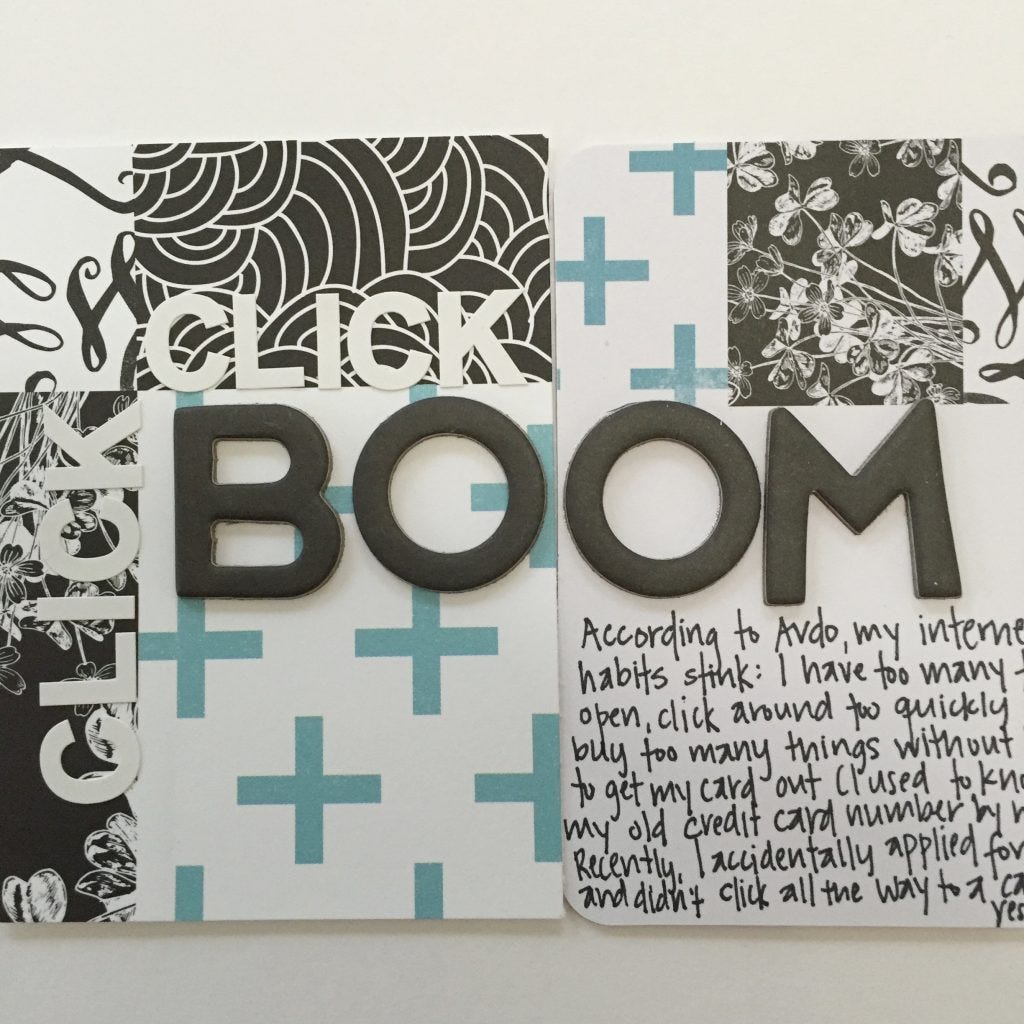 CLICK
CLICK
BOOM
According to Avdo, my interne
habits stink: I have too many t
open, click around too quickly
buy too many things without
to get my card out (I used to kno
my old credit card number by
Recently, I accidentally applied for
and didn't click all the way to a ca
yes